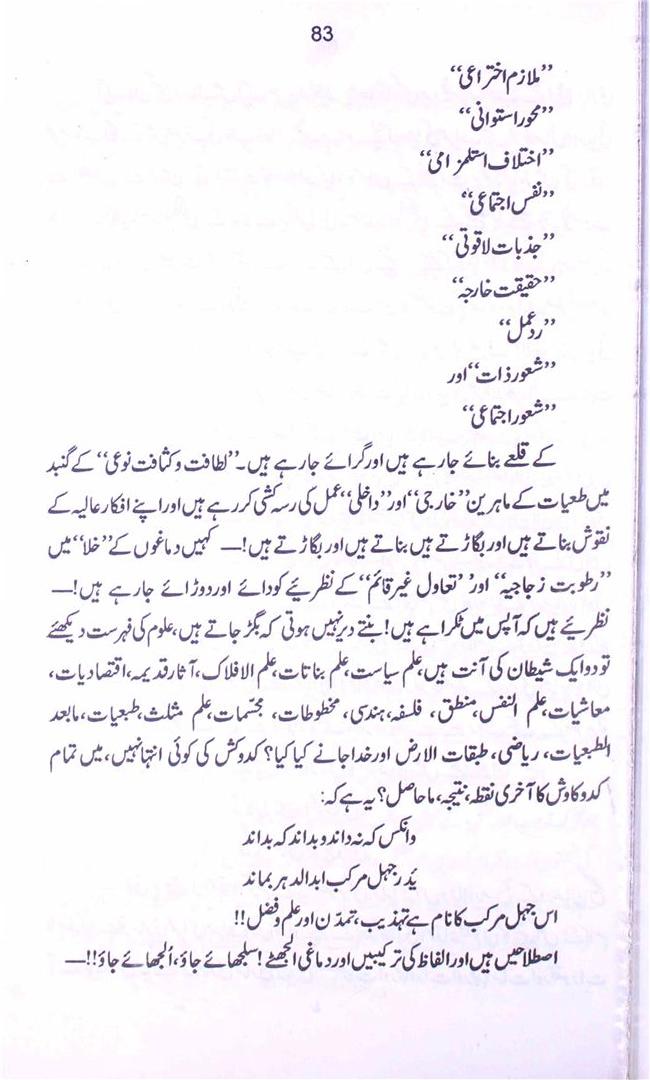 83
”ملازم اختراعی“
”محور استوانی“
”اختلاف استلمزامی“
”نفس اجتماعی“
”جذبات لاقوتی“
”حقیقت خارجہ“
”ردعمل“
”شعور ذات“ اور
”شعور اجتماعی“
کے قلعے بنائے جارہے ہیں اور گرائے جارہے ہیں۔ ”لطافت وکثافت نوعی“ کے گنبد
میں طعیات کے ماہرین ”خارجی“ اور ”داخلی“ عمل کی رسہ کشی کررہے ہیں اور اپنے افکار عالیہ کے
نقوش بناتے ہیں اور بگاڑتے ہیں بناتے ہیں اور بگاڑتے ہیں!— کہیں دماغوں کے ”خلا“ میں
”رطوبت زجاجیہ“ اور ’تعاول غیر قائم“ کے نظریئے کودائے اور دوڑائے جارہے ہیں!—
نظریئے ہیں کہ آپس میں ٹکراہے ہیں! بنتے دیر نہیں ہوتی کہ بگڑ جاتے ہیں، علوم کی فہرست دیکھئے
تو دوایک شیطان کی آنت ہیں، علم سیاست، علم بناتات، علم الافلاک، آثار قدیمہ، اقتصادیات،
معاشیات، علم النفس، منطق، فلسفہ، ہندسی، مخطوطات، مجسّمات، علم مثلث، طبعیات، مابعد
الطبعیات، ریاضی، طبقات الارض اور خدا جانے کیا کیا؟ کدوکش کی کوئی انتہا نہیں، میں تمام
کدوکاوش کا آخری نقطہ، نتیجہ، ماحاصل؟ یہ ہے کہ:
وانکس کہ نہ داند و بداند کہ بداند
یَدر جہل مرکب ابدالدہر بماند
اس جہل مرکب کا نام ہے تہذیب، تمدّن اور علم وفضل!!
اصطلاحیں ہیں اور الفاظ کی ترکیبیں اور دماغی الجھٹے! سلجھائے جاؤ، اُلجھائے جاؤ!!—